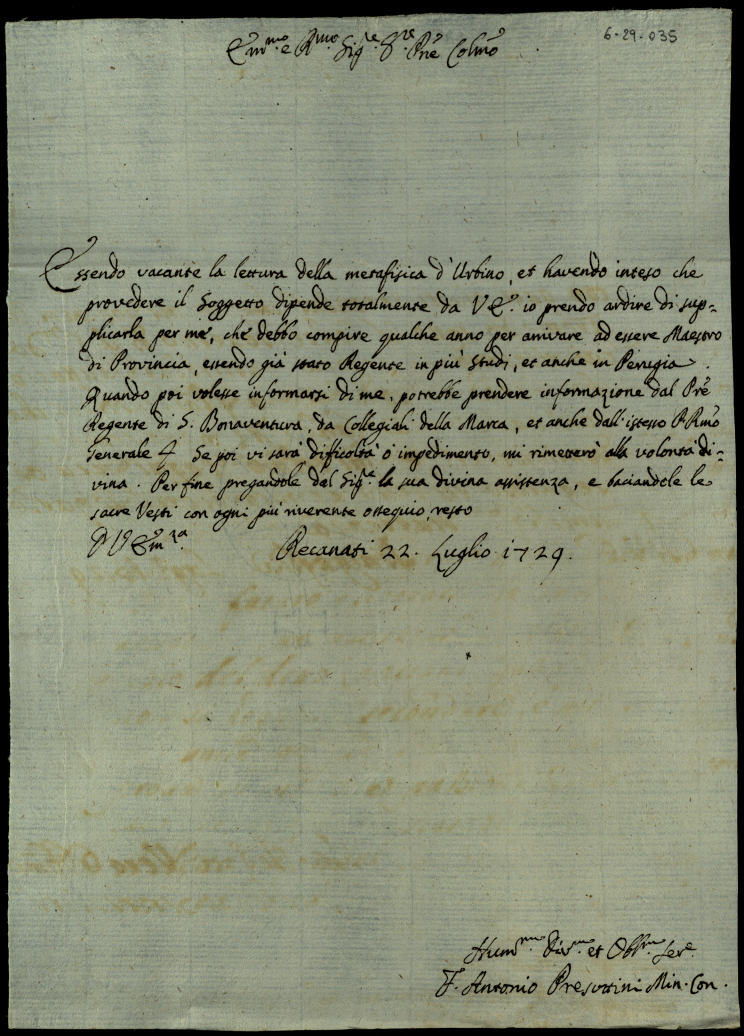 6-29-035
Em̃mo e Rmo Sigre Sre Prẽ Colmõ
Essendo vacante la lettura della metafisica d'Urbino, et havendo inteso che
provedere il Soggetto dipende totalmente da V Eã. io prendo ardire di sup=
plicarla per me, che debbo compire qualche anno per arrivare ad essere Maestro
di Provincia, essendo già stato Regente in più Studi, et anche in Perugia.
Quando poi volesse informarsi di me, potrebbe prendere informazione dal Prẽ
Regente di S. Bonaventura, da Collegiali della Marca, et anche dall'istesso P. Rmõ
Generale. Se poi vi sarà difficoltà ò impedimento, mi rimetterò alla volontà di=
vina. Per fine pregandole dal Sigre la sua divina assistenza, e baciandole le
sacre Vesti con ogni più riverente ossequio, resto
D V Em̃za.
Recanati 22. Luglio 1729.
Hummo Divmo et Obblmo Serẽ
F. Antonio Presuttini Min. Con.